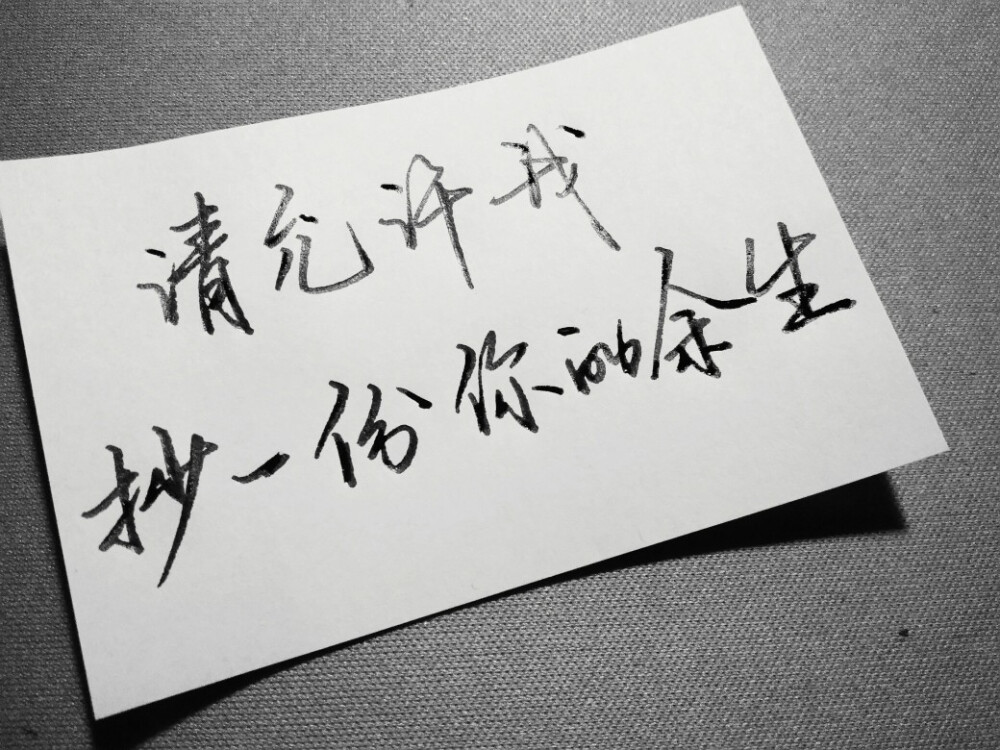 请允许我
抄一份你的余生